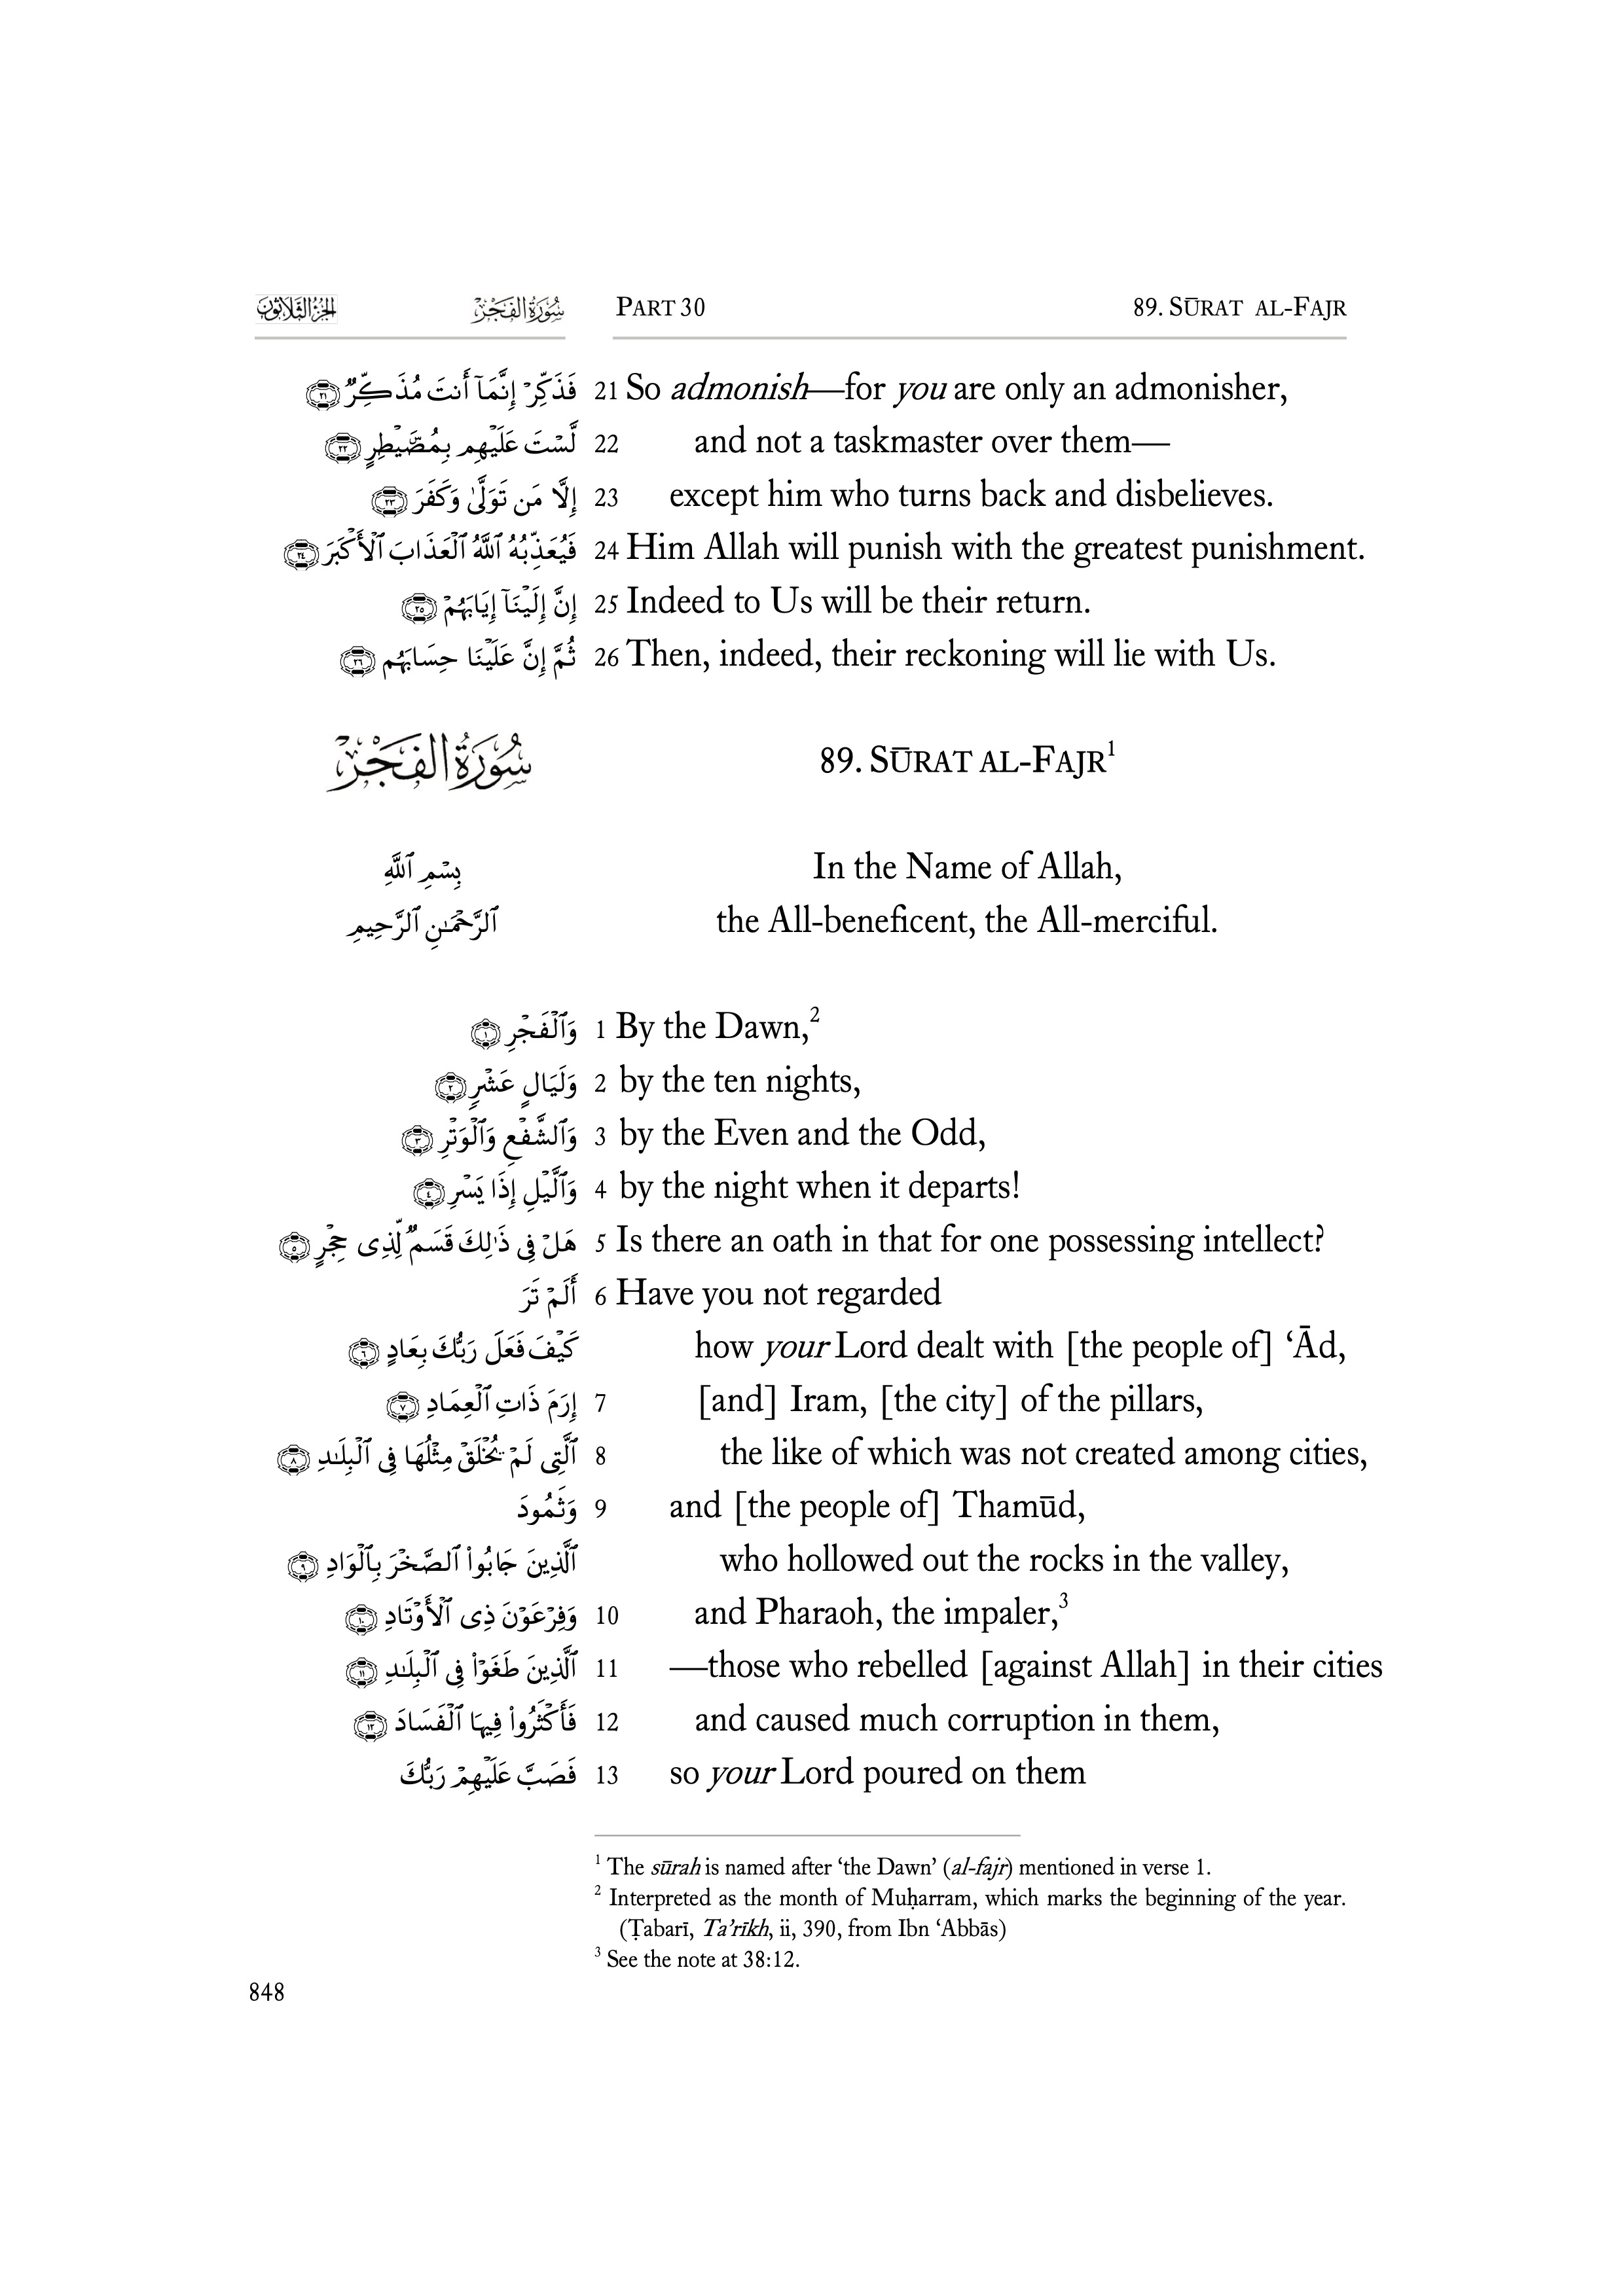 الجزء الثلاثون سورة الفجر PART 30 89. SŪRAT AL-FAJR
فَذَكِّرْ إِنَّمَآ أَنتَ مُذَكِّرٌ ٢١ 21 So admonish—for you are only an admonisher,
لَّسْتَ عَلَيْهِم بِمُصَيْطِرٍ ٢٢ 22 and not a taskmaster over them—
إِلَّا مَن تَوَلَّىٰ وَكَفَرَ ٢٣ 23 except him who turns back and disbelieves.
فَيُعَذِّبُهُ ٱللَّهُ ٱلْعَذَابَ ٱلْأَكْبَرَ ٢٤ 24 Him Allah will punish with the greatest punishment.
إِنَّ إِلَيْنَآ إِيَابَهُمْ ٢٥ 25 Indeed to Us will be their return.
ثُمَّ إِنَّ عَلَيْنَا حِسَابَهُم ٢٦ 26 Then, indeed, their reckoning will lie with Us.
سُورَةُ الفَجْرِ 89. SŪRAT AL-FAJR¹
بِسْمِ ٱللَّهِ In the Name of Allah,
ٱلرَّحْمَـٰنِ ٱلرَّحِيمِ the All-beneficent, the All-merciful.
وَٱلْفَجْرِ ١ 1 By the Dawn,²
وَلَيَالٍ عَشْرٍ ٢ 2 by the ten nights,
وَٱلشَّفْعِ وَٱلْوَتْرِ ٣ 3 by the Even and the Odd,
وَٱلَّيْلِ إِذَا يَسْرِ ٤ 4 by the night when it departs!
هَلْ فِى ذَٰلِكَ قَسَمٌ لِّذِى حِجْرٍ ٥ 5 Is there an oath in that for one possessing intellect?
أَلَمْ تَرَ 6 Have you not regarded
كَيْفَ فَعَلَ رَبُّكَ بِعَادٍ ٦ how your Lord dealt with [the people of] ‘Ād,
إِرَمَ ذَاتِ ٱلْعِمَادِ ٧ 7 [and] Iram, [the city] of the pillars,
ٱلَّتِى لَمْ يُخْلَقْ مِثْلُهَا فِى ٱلْبِلَـٰدِ ٨ 8 the like of which was not created among cities,
وَثَمُودَ 9 and [the people of] Thamūd,
ٱلَّذِينَ جَابُوا۟ ٱلصَّخْرَ بِٱلْوَادِ ٩ who hollowed out the rocks in the valley,
وَفِرْعَوْنَ ذِى ٱلْأَوْتَادِ ١٠ 10 and Pharaoh, the impaler,³
ٱلَّذِينَ طَغَوْا۟ فِى ٱلْبِلَـٰدِ ١١ 11 —those who rebelled [against Allah] in their cities
فَأَكْثَرُوا۟ فِيهَا ٱلْفَسَادَ ١٢ 12 and caused much corruption in them,
فَصَبَّ عَلَيْهِمْ رَبُّكَ 13 so your Lord poured on them
¹ The sūrah is named after ‘the Dawn’ (al-fajr) mentioned in verse 1.
² Interpreted as the month of Muḥarram, which marks the beginning of the year.
(Ṭabarī, Ta’rīkh, ii, 390, from Ibn ‘Abbās)
³ See the note at 38:12.
848